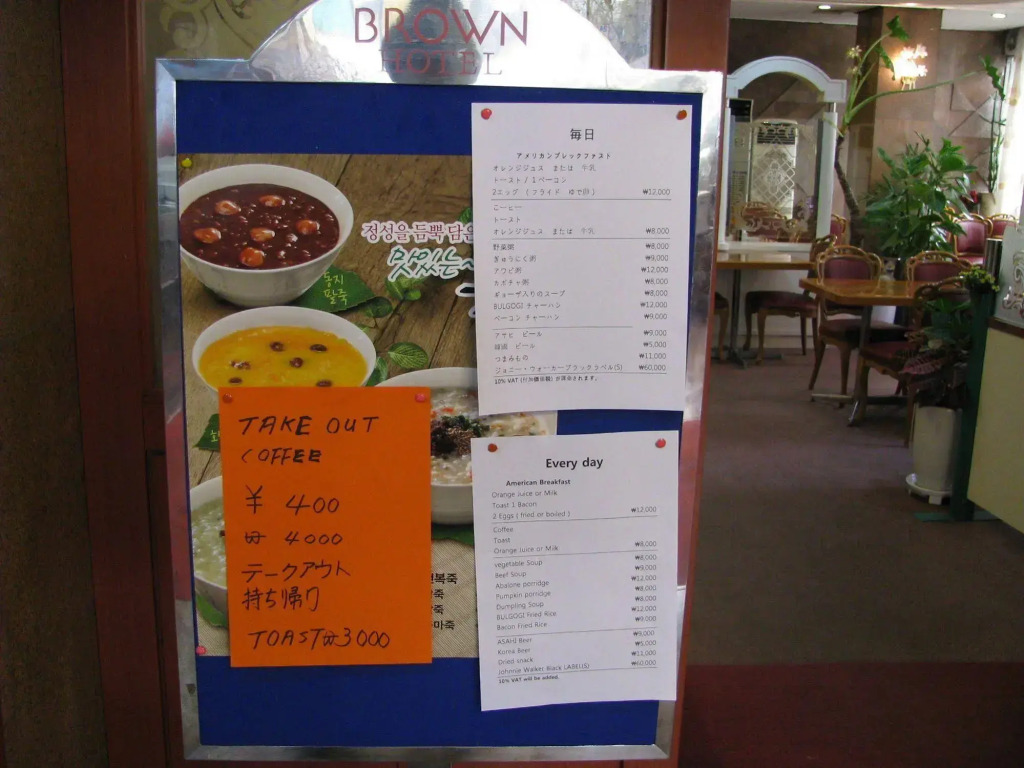 BROWN
HOTEL
정성을 듬뿍 담은
맛있는
동지
팥죽
毎日
アメリカンブレックファスト
オレンジジュス または 牛乳
トースト / 1ベーコン
2エッグ ( フライド ゆで卵 ) ₩12,000
こーヒー
トースト
オレンジジュス または 牛乳 ₩8,000
野菜粥 ₩8,000
ぎゅうにく粥 ₩9,000
アワビ粥 ₩12,000
カボチャ粥 ₩8,000
ギョーザ入りのスープ ₩8,000
BULGOGI チャーハン ₩12,000
ベーコン チャーハン ₩9,000
アサヒ ビール ₩9,000
韓国 ビール ₩5,000
つまみもの ₩11,000
ジョニー・ウォーカーブラックラベル(S) ₩60,000
TAKE OUT
COFFEE
¥ 400
₩ 4000
テークアウト
持ち帰り
TOAST ₩3000
복죽
죽
죽
마죽
Every day
American Breakfast
Orange Juice or Milk
Toast 1 Bacon
2 Eggs ( fried or boiled ) ₩12,000
Coffee
Toast
Orange Juice or Milk ₩8,000
vegetable Soup ₩8,000
Beef Soup ₩9,000
Abalone porridge ₩12,000
Pumpkin porridge ₩8,000
Dumpling Soup ₩8,000
BULGOGI Fried Rice ₩12,000
Bacon Fried Rice ₩9,000
ASAHI Beer ₩9,000
Korea Beer ₩5,000
Dried snack ₩11,000
Johnnie Walker Black LABEL(S) ₩60,000
10% VAT will be added.